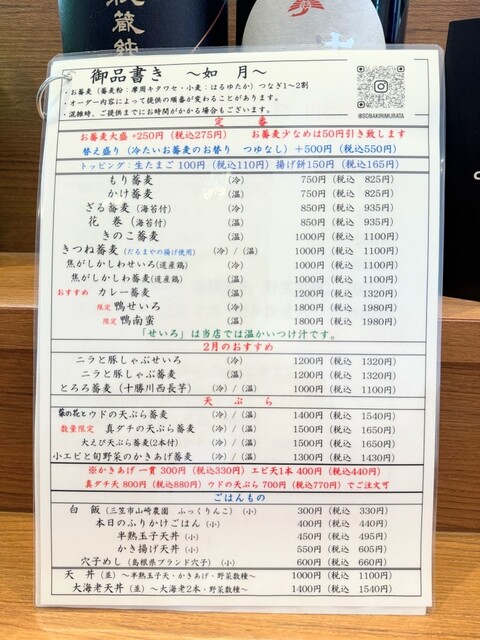 御品書き ～如 月～
・お蕎麦（蕎麦粉：摩周キタワセ・小麦：はるゆたか）つなぎ1～2割
・オーダー内容によって提供の順番が変わることがあります。
・混雑時、ご提供までにお時間がかかる場合もございます。
@SOBAKIRIMURATA
定 番
お蕎麦大盛＋250円（税込275円） お蕎麦少なめは50円引き致します
替え盛り（冷たいお蕎麦のお替り つゆなし）＋500円（税込550円）
トッピング：生たまご 100円（税込110円）揚げ餅150円（税込165円）
もり蕎麦 （冷） 750円（税込 825円）
かけ蕎麦 （温） 750円（税込 825円）
ざる蕎麦（海苔付） （冷） 850円（税込 935円）
花 巻（海苔付） （温） 850円（税込 935円）
きのこ蕎麦 （温） 1000円（税込 1100円）
きつね蕎麦（だるまやの揚げ使用） （冷）/（温） 1000円（税込 1100円）
焦がしかしわせいろ（道産鶏） （冷） 1000円（税込 1100円）
焦がしかしわ蕎麦（道産鶏） （温） 1000円（税込 1100円）
おすすめ カレー蕎麦 （温） 1200円（税込 1320円）
限定 鴨せいろ （冷） 1800円（税込 1980円）
限定 鴨南蛮 （温） 1800円（税込 1980円）
「せいろ」は当店では温かいつけ汁です。
2月のおすすめ
ニラと豚しゃぶせいろ （冷） 1200円（税込 1320円）
ニラと豚しゃぶ蕎麦 （温） 1200円（税込 1320円）
とろろ蕎麦（十勝川西長芋） （冷）/（温） 1000円（税込 1100円）
天 ぷ ら
菜の花とウドの天ぷら蕎麦 （冷）/（温） 1400円（税込 1540円）
数量限定 真ダチの天ぷら蕎麦 （冷）/（温） 1500円（税込 1650円）
大えび天ぷら蕎麦（2本付） （冷）/（温） 1500円（税込 1650円）
小エビと旬野菜のかきあげ蕎麦 （冷）/（温） 1300円（税込 1430円）
※かきあげ 一貫 300円（税込330円）エビ天1本 400円（税込440円）
真ダチ天 800円（税込880円）ウドの天ぷら 700円（税込770円）でご注文可
ごはんもの
白 飯（三笠市山崎農園 ふっくりんこ）（小） 300円（税込 330円）
本日のふりかけごはん（小） 400円（税込 440円）
半熟玉子天丼（小） 450円（税込 495円）
かき揚げ天丼（小） 550円（税込 605円）
穴子めし（島根県ブランド穴子）（小） 600円（税込 660円）
天 丼（並）～半熟玉子天・かきあげ・野菜数種～ 1000円（税込 1100円）
大海老天丼（並）～大海老2本・野菜数種～ 1400円（税込 1540円）